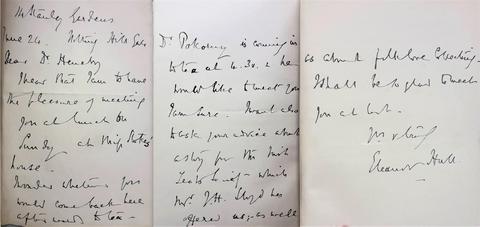 14 Stanley Gardens
June 24. Notting Hill Gate
Dear Dr. Henebry
I hear that I am to have
the pleasure of meeting
you at lunch on
Sunday at Miss Stokes'
house.
I wonder whether you
would come back here
afterwards to tea -
Dr Pokorny is coming in
to tea at 4.30. & he
would like to meet you
I am sure. I want also
to ask your advice about
a story for the Irish
Texts Society - which
Mr. J.H. Lloyd has
offered us; as well
as about folklore collecting.
I shall be so glad to meet
you at last.
Yrs sincly
Eleanor Hull